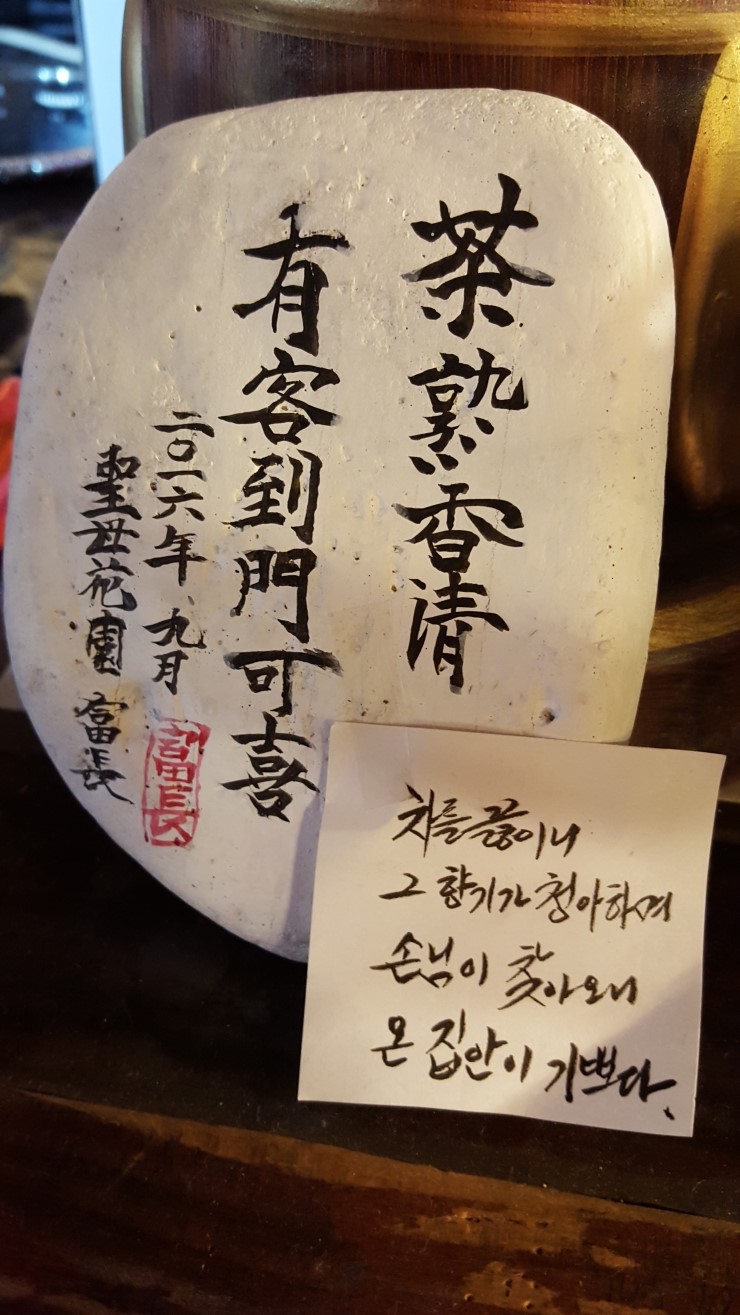 茶熟香清
有客到門可喜
二〇一六年 九月
聖母花園 富長
富長
차를 끓이니
그 향기가 청아하며
손님이 찾아오니
온 집안이 기쁘다.